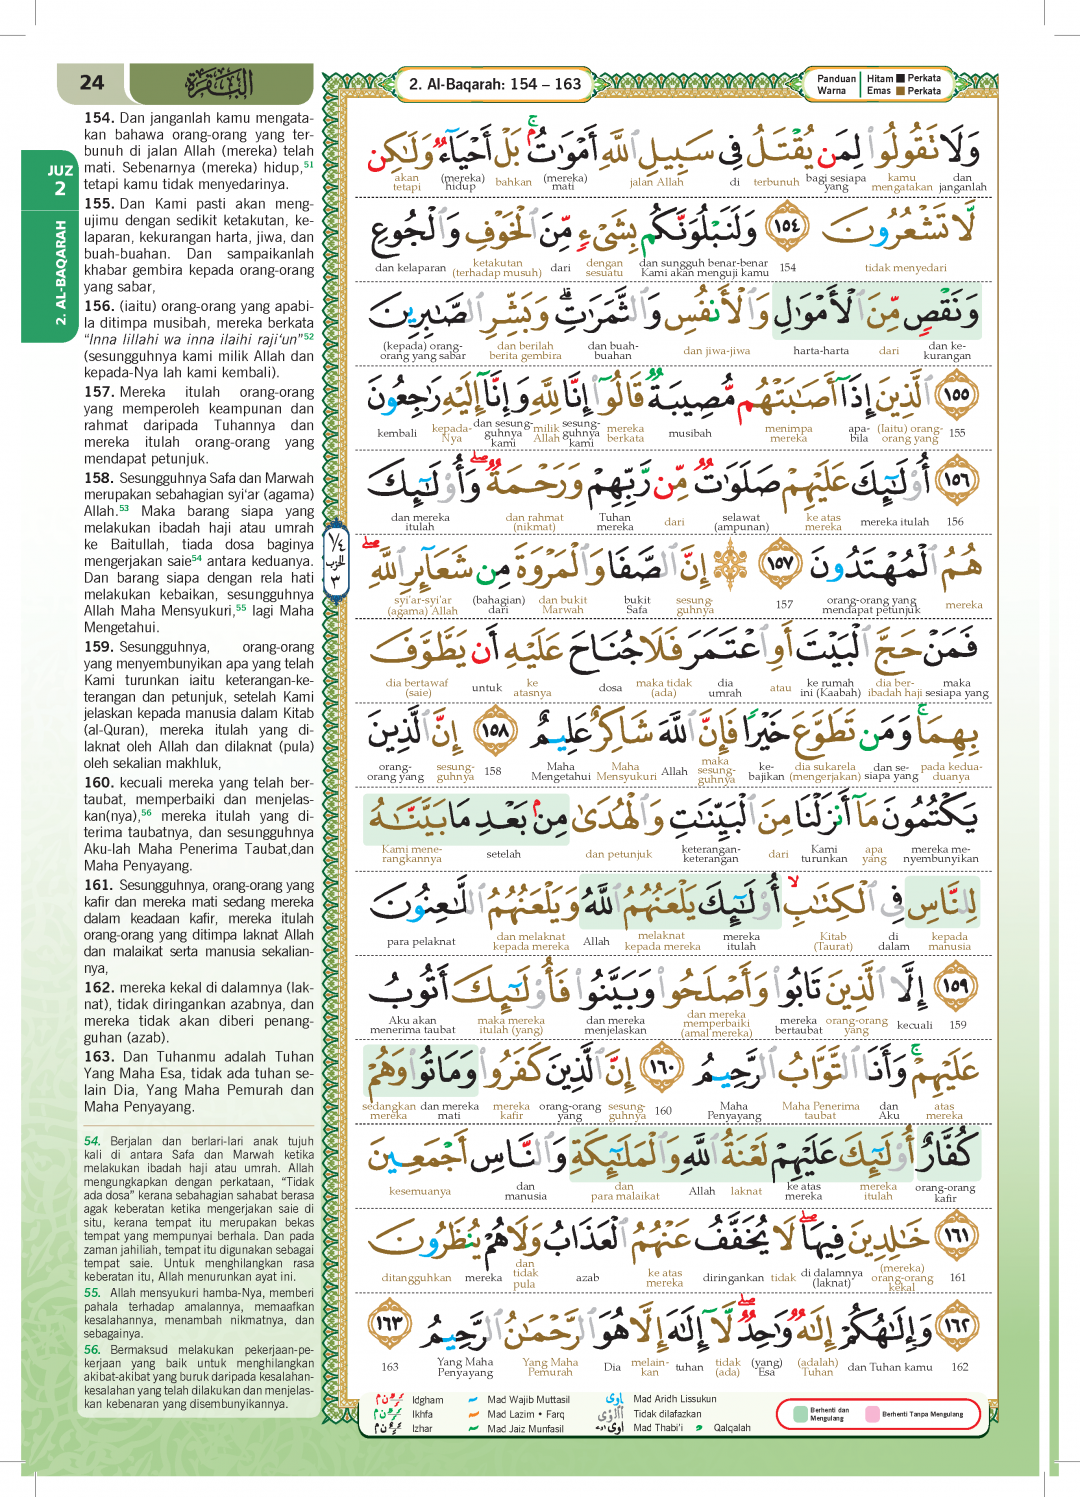 24
البقرة
2. Al-Baqarah: 154 – 163
Panduan Warna
Hitam Perkata
Emas Perkata
JUZ
2
2. AL-BAQARAH
154. Dan janganlah kamu mengata-
kan bahawa orang-orang yang ter-
bunuh di jalan Allah (mereka) telah
mati. Sebenarnya (mereka) hidup,51
tetapi kamu tidak menyedarinya.
155. Dan Kami pasti akan meng-
ujimu dengan sedikit ketakutan, ke-
laparan, kekurangan harta, jiwa, dan
buah-buahan. Dan sampaikanlah
khabar gembira kepada orang-orang
yang sabar,
156. (iaitu) orang-orang yang apabi-
la ditimpa musibah, mereka berkata
“Inna lillahi wa inna ilaihi raji‘un”52
(sesungguhnya kami milik Allah dan
kepada-Nya lah kami kembali).
157. Mereka itulah orang-orang
yang memperoleh keampunan dan
rahmat daripada Tuhannya dan
mereka itulah orang-orang yang
mendapat petunjuk.
158. Sesungguhnya Safa dan Marwah
merupakan sebahagian syi‘ar (agama)
Allah.53 Maka barang siapa yang
melakukan ibadah haji atau umrah
ke Baitullah, tiada dosa baginya
mengerjakan saie54 antara keduanya.
Dan barang siapa dengan rela hati
melakukan kebaikan, sesungguhnya
Allah Maha Mensyukuri,55 lagi Maha
Mengetahui.
159. Sesungguhnya, orang-orang
yang menyembunyikan apa yang telah
Kami turunkan iaitu keterangan-ke-
terangan dan petunjuk, setelah Kami
jelaskan kepada manusia dalam Kitab
(al-Quran), mereka itulah yang di-
laknat oleh Allah dan dilaknat (pula)
oleh sekalian makhluk,
160. kecuali mereka yang telah ber-
taubat, memperbaiki dan menjelas-
kan(nya),56 mereka itulah yang di-
terima taubatnya, dan sesungguhnya
Aku-lah Maha Penerima Taubat,dan
Maha Penyayang.
161. Sesungguhnya, orang-orang yang
kafir dan mereka mati sedang mereka
dalam keadaan kafir, mereka itulah
orang-orang yang ditimpa laknat Allah
dan malaikat serta manusia sekalian-
nya,
162. mereka kekal di dalamnya (lak-
nat), tidak diringankan azabnya, dan
mereka tidak akan diberi penang-
guhan (azab).
163. Dan Tuhanmu adalah Tuhan
Yang Maha Esa, tidak ada tuhan se-
lain Dia, Yang Maha Pemurah dan
Maha Penyayang.
54. Berjalan dan berlari-lari anak tujuh
kali di antara Safa dan Marwah ketika
melakukan ibadah haji atau umrah. Allah
mengungkapkan dengan perkataan, “Tidak
ada dosa” kerana sebahagian sahabat berasa
agak keberatan ketika mengerjakan saie di
situ, kerana tempat itu merupakan bekas
tempat yang mempunyai berhala. Dan pada
zaman jahiliah, tempat itu digunakan sebagai
tempat saie. Untuk menghilangkan rasa
keberatan itu, Allah menurunkan ayat ini.
55. Allah mensyukuri hamba-Nya, memberi
pahala terhadap amalannya, memaafkan
kesalahannya, menambah nikmatnya, dan
sebagainya.
56. Bermaksud melakukan pekerjaan-pe-
kerjaan yang baik untuk menghilangkan
akibat-akibat yang buruk daripada kesalahan-
kesalahan yang telah dilakukan dan menjelas-
kan kebenaran yang disembunyikannya.
١/٤ الحزب ٣
وَلَا تَقُولُوا۟ لِمَن يُقْتَلُ فِى سَبِيلِ ٱللَّهِ أَمْوَٰتٌۢ ۚ بَلْ أَحْيَآءٌ وَلَٰكِن
dan janganlah kamu mengatakan bagi sesiapa yang terbunuh di jalan Allah (mereka) mati bahkan (mereka) hidup akan tetapi
لَّا تَشْعُرُونَ ١٥٤ وَلَنَبْلُوَنَّكُم بِشَىْءٍ مِّنَ ٱلْخَوْفِ وَٱلْجُوعِ
tidak menyedari 154 dan sungguh benar-benar Kami akan menguji kamu dengan sesuatu dari ketakutan (terhadap musuh) dan kelaparan
وَنَقْصٍ مِّنَ ٱلْأَمْوَٰلِ وَٱلْأَنفُسِ وَٱلثَّمَرَٰتِ ۗ وَبَشِّرِ ٱلصَّٰبِرِينَ
dan ke-kurangan dari harta-harta dan jiwa-jiwa dan buah-buahan dan berilah berita gembira (kepada) orang-orang yang sabar
١٥٥ ٱلَّذِينَ إِذَآ أَصَٰبَتْهُم مُّصِيبَةٌ قَالُوٓا۟ إِنَّا لِلَّهِ وَإِنَّآ إِلَيْهِ رَٰجِعُونَ
155 (Iaitu) orang-orang yang apa-bila menimpa mereka musibah mereka berkata sesung-guhnya kami milik Allah dan sesung-guhnya kami kepada-Nya kembali
١٥٦ أُو۟لَٰٓئِكَ عَلَيْهِمْ صَلَوَٰتٌ مِّن رَّبِّهِمْ وَرَحْمَةٌ ۖ وَأُو۟لَٰٓئِكَ
156 mereka itulah ke atas mereka selawat (ampunan) dari Tuhan mereka dan rahmat (nikmat) dan mereka itulah
هُمُ ٱلْمُهْتَدُونَ ١٥٧ ۞ إِنَّ ٱلصَّفَا وَٱلْمَرْوَةَ مِن شَعَآئِرِ ٱللَّهِ ۖ
mereka orang-orang yang mendapat petunjuk 157 sesung-guhnya bukit Safa dan bukit Marwah (bahagian) dari syi’ar-syi’ar (agama) Allah
فَمَنْ حَجَّ ٱلْبَيْتَ أَوِ ٱعْتَمَرَ فَلَا جُنَاحَ عَلَيْهِ أَن يَطَّوَّفَ
maka sesiapa yang dia ber-ibadah haji ke rumah ini (Kaabah) atau dia umrah maka tidak (ada) dosa ke atasnya untuk dia bertawaf (saie)
بِهِمَا ۚ وَمَن تَطَوَّعَ خَيْرًا فَإِنَّ ٱللَّهَ شَاكِرٌ عَلِيمٌ ١٥٨ إِنَّ ٱلَّذِينَ
pada kedua-duanya dan se-siapa yang dia sukarela (mengerjakan) ke-bajikan maka sesung-guhnya Allah Maha Mensyukuri Maha Mengetahui 158 sesung-guhnya orang-orang yang
يَكْتُمُونَ مَآ أَنزَلْنَا مِنَ ٱلْبَيِّنَٰتِ وَٱلْهُدَىٰ مِنۢ بَعْدِ مَا بَيَّنَّٰهُ
mereka me-nyembunyikan apa yang Kami turunkan dari keterangan-keterangan dan petunjuk setelah Kami mene-rangkannya
لِلنَّاسِ فِى ٱلْكِتَٰبِ ۙ أُو۟لَٰٓئِكَ يَلْعَنُهُمُ ٱللَّهُ وَيَلْعَنُهُمُ ٱللَّٰعِنُونَ
kepada manusia di dalam Kitab (Taurat) mereka itulah melaknat kepada mereka Allah dan melaknat kepada mereka para pelaknat
١٥٩ إِلَّا ٱلَّذِينَ تَابُوا۟ وَأَصْلَحُوا۟ وَبَيَّنُوا۟ فَأُو۟لَٰٓئِكَ أَتُوبُ
159 kecuali orang-orang yang mereka bertaubat dan mereka memperbaiki (amal mereka) dan mereka menjelaskan maka mereka itulah (yang) Aku akan menerima taubat
عَلَيْهِمْ ۚ وَأَنَا ٱلتَّوَّابُ ٱلرَّحِيمُ ١٦٠ إِنَّ ٱلَّذِينَ كَفَرُوا۟ وَمَاتُوا۟ وَهُمْ
atas mereka dan Aku Maha Penerima taubat Maha Penyayang 160 sesung-guhnya orang-orang yang mereka kafir dan mereka mati sedangkan mereka
كُفَّارٌ أُو۟لَٰٓئِكَ عَلَيْهِمْ لَعْنَةُ ٱللَّهِ وَٱلْمَلَٰٓئِكَةِ وَٱلنَّاسِ أَجْمَعِينَ
orang-orang kafir mereka itulah ke atas mereka laknat Allah dan para malaikat dan manusia kesemuanya
١٦١ خَٰلِدِينَ فِيهَا ۖ لَا يُخَفَّفُ عَنْهُمُ ٱلْعَذَابُ وَلَا هُمْ يُنظَرُونَ
161 (mereka) orang-orang kekal di dalamnya (laknat) tidak diringankan ke atas mereka azab dan tidak pula mereka ditangguhkan
١٦٢ وَإِلَٰهُكُمْ إِلَٰهٌ وَٰحِدٌ ۖ لَّآ إِلَٰهَ إِلَّا هُوَ ٱلرَّحْمَٰنُ ٱلرَّحِيمُ ١٦٣
162 dan Tuhan kamu (adalah) Tuhan (yang) Esa tidak (ada) tuhan melain-kan Dia Yang Maha Pemurah Yang Maha Penyayang 163
Idgham
Ikhfa
Izhar
Mad Wajib Muttasil
Mad Lazim • Farq
Mad Jaiz Munfasil
Mad Aridh Lissukun
Tidak dilafazkan
Mad Thabi'i
Qalqalah
Berhenti dan Mengulang
Berhenti Tanpa Mengulang